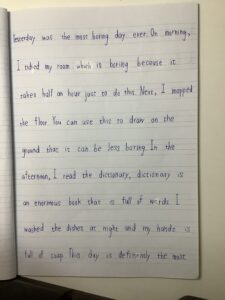 Yesterday was the most boring day ever. On morning,
I tidied my room which is boring because it
takes half an hour just to do this. Next, I mopped
the floor. You can use this to draw on the
ground that it can be less boring. In the
afternoon, I read the dictionary, dictionary is
an enormous book that is full of words. I
washed the dishes at night and my hands is
full of soap. This day is definitely the most